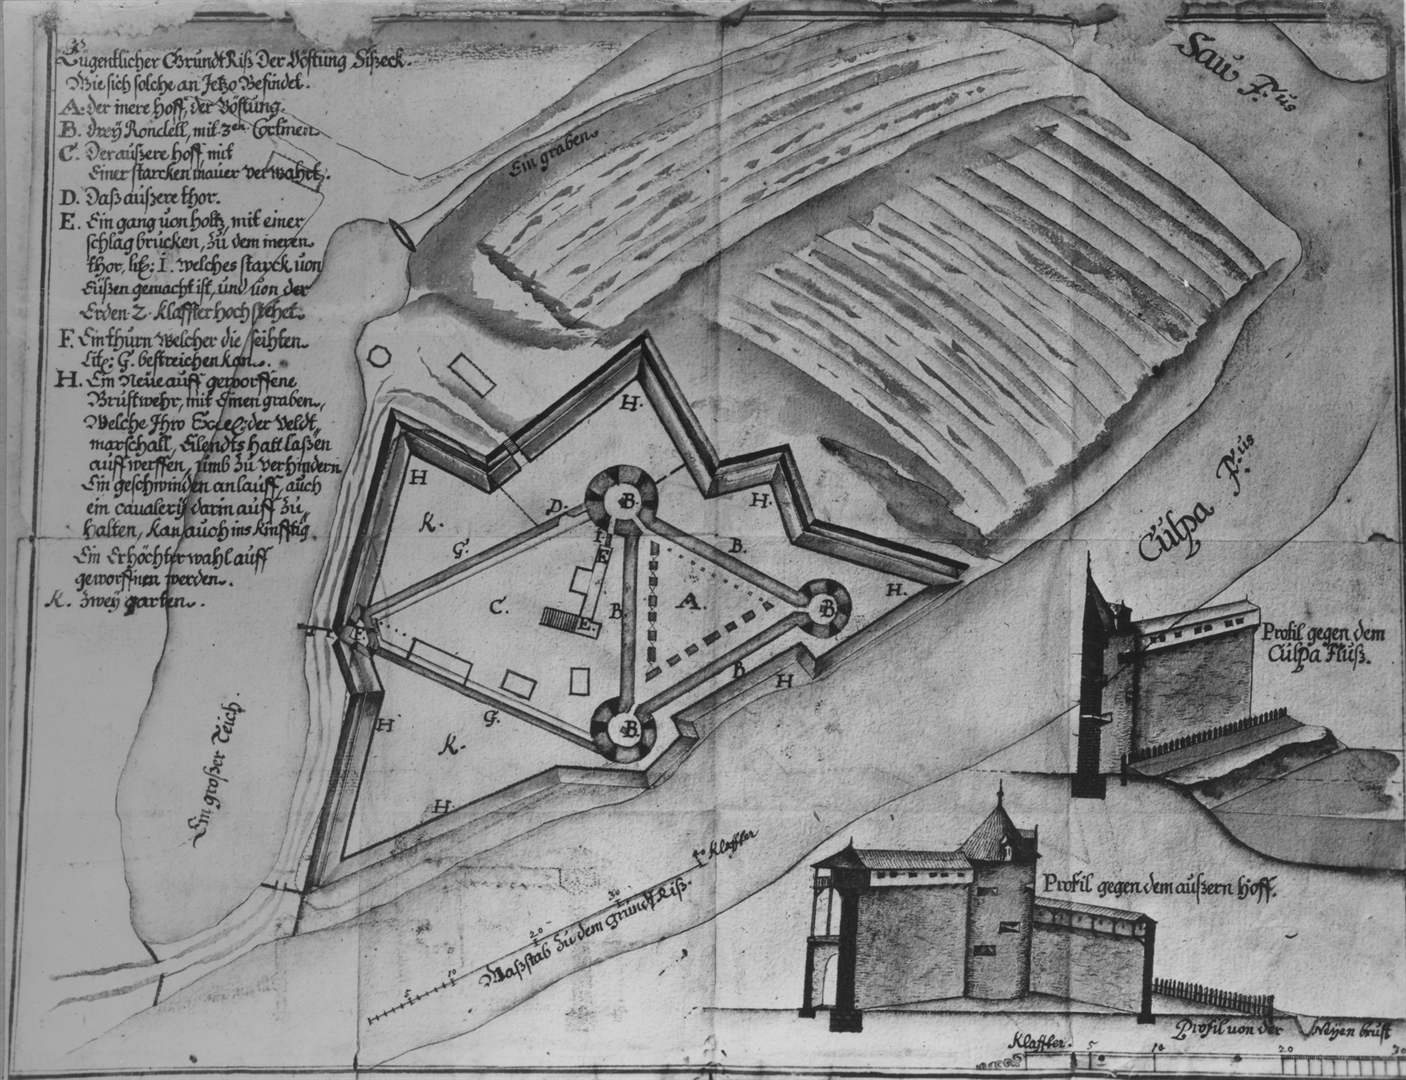 Eügentlicher Grundt Riß Der Vöstung Sißeck.
Wie sich solche an Jetzo Befindet.
A. der inere Hoff, der Vöstung.
B. dreÿ Rondell, mit 3en Cortinen
C. Der außere hoff, mit
Einer starcken mauer verwahrt.
D. Daß außere thor.
E. Ein gang von holtz, mit einer
schlag brucken, zu dem ineren
thor, lit: I. welches starck von
Eüßen gemacht ist, und von der
Erden 2. Klaffter hoch stehet.
F. Ein thurn Welcher die seihten
lit: G. bestreichen kan.
H. Ein Neüe auff geworffene
Brustwehr, mit Einen graben,
Welche Ihro Excel: der Veldt
marschall, hatt laßen
auff werffen, umb zu verhindern
Ein geschwinden anlauff, auch
ein cavalerÿ darin auff zu
halten, kan auch ins künfftig
Ein Erhöchter wahl auff
geworffnen werden.
K. Zweÿ garten.
Sau F:us
Ein graben
Culpa F:us
H.
H
H.
D.
B.
K.
G.
I
E
B.
H.
C.
B
A.
B
F.
E.
B
H
H
G.
B.
K.
H.
Ein großer Teich
Profil gegen dem
Culpa Fluß.
Profil gegen dem außern Hoff.
5 10 20 30 40 Klaffter
Maßstab zu dem Grundt Riß.
Profil von der Neÿen brust
Klaffter. 5 10 20 30